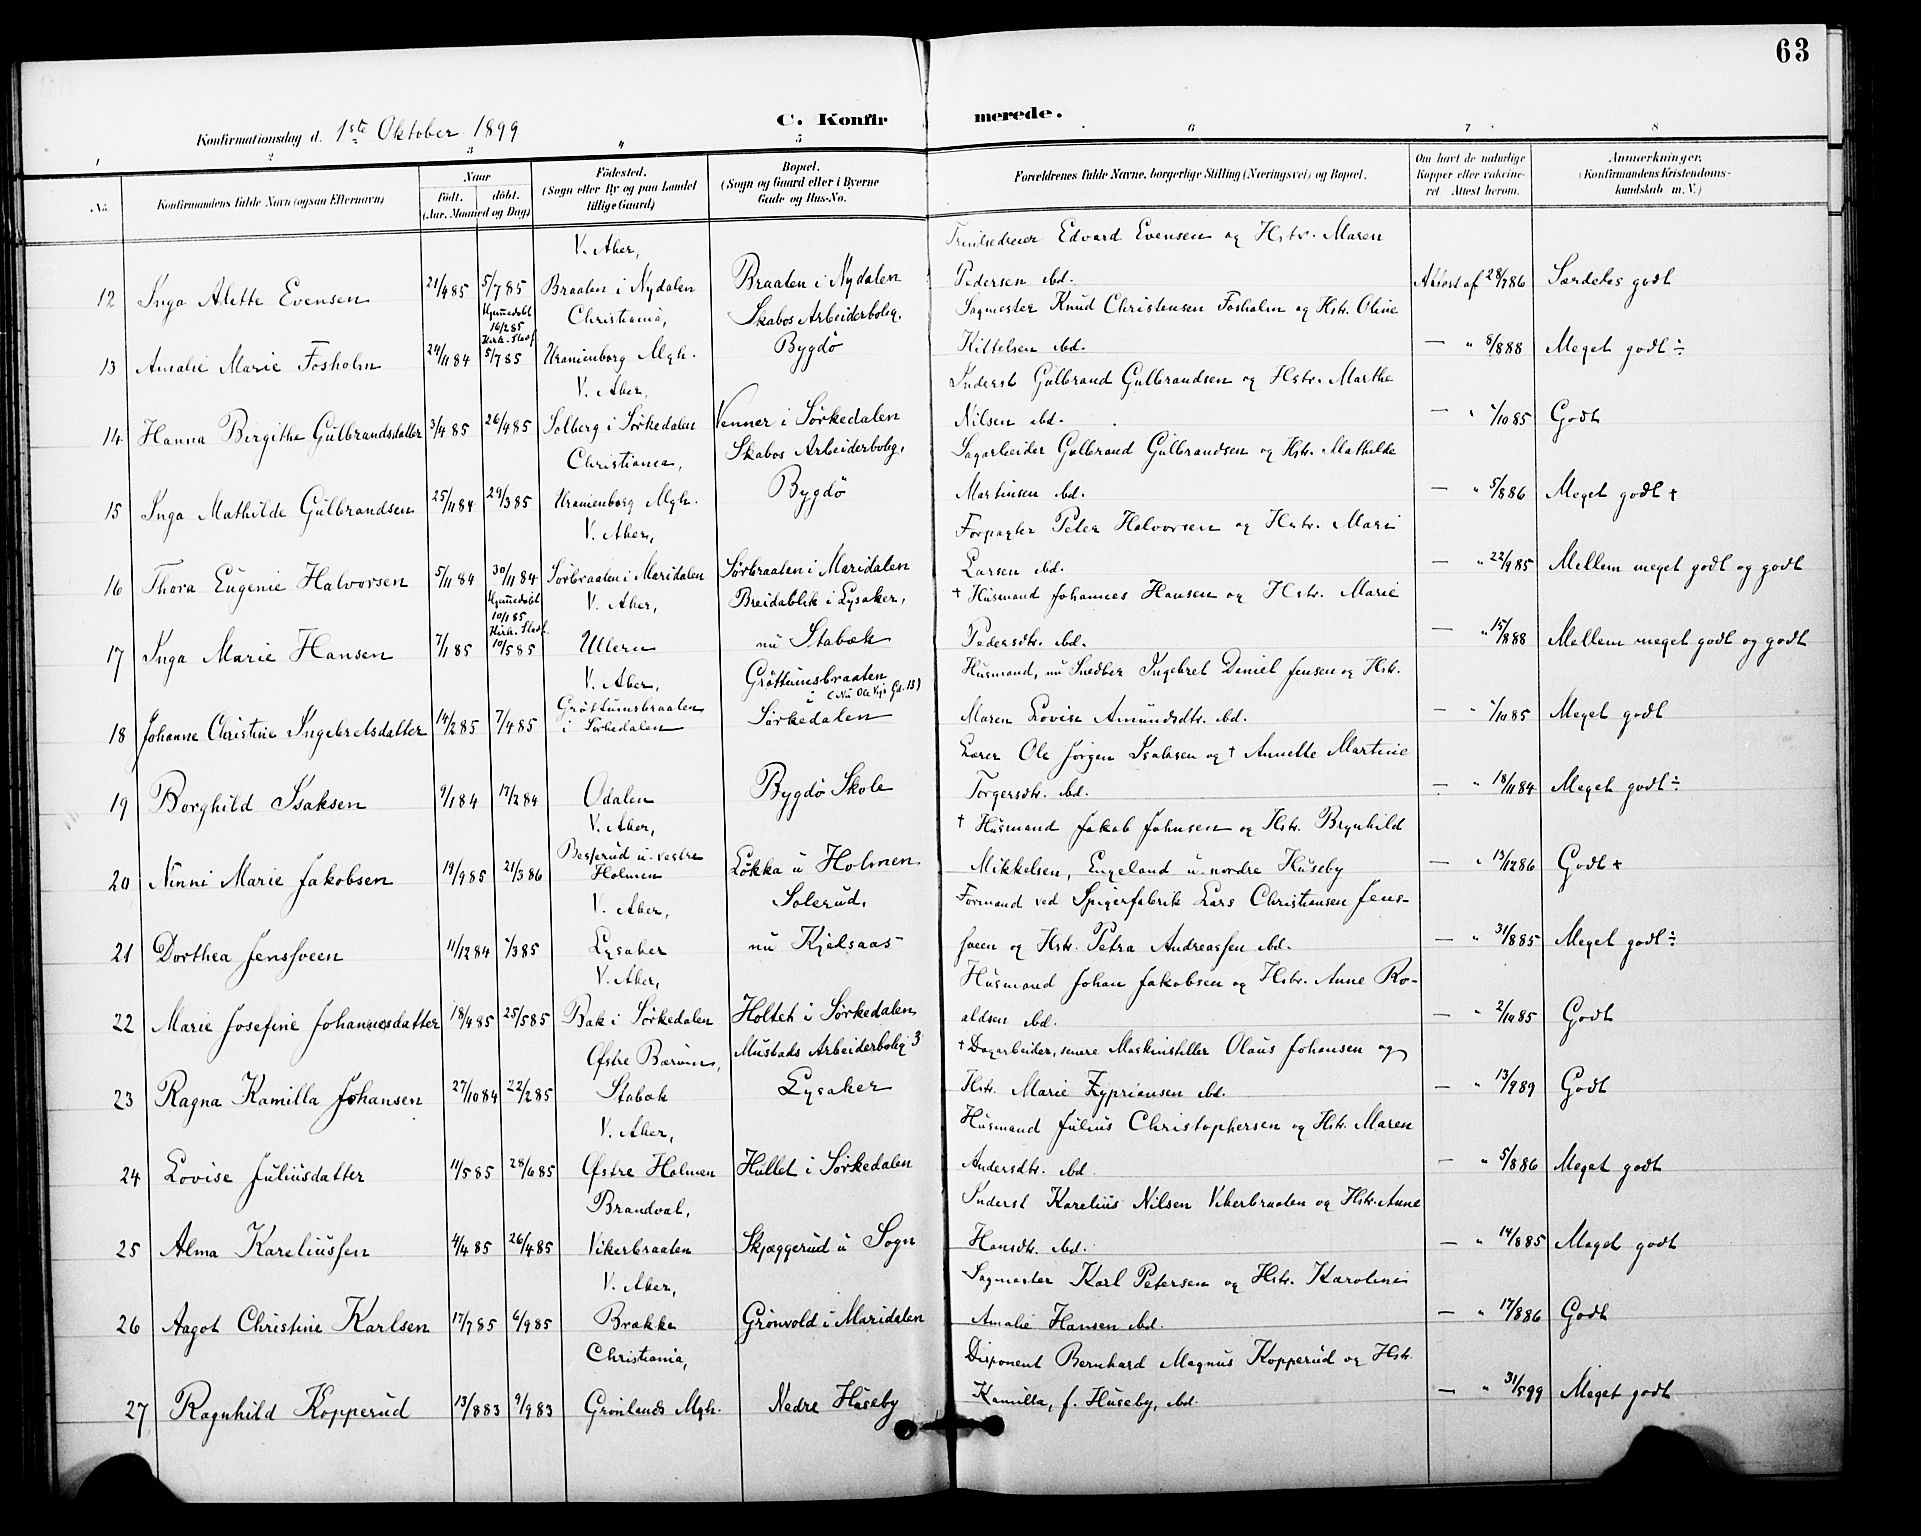 63
C. Konfirmerede.
Konfirmationsdag d. 1ste Oktober 1899
1 2 3 4 5 6 7 8
No.
Konfirmandens fulde Navn (ogsaa Efternavn)
Naar
født. døbt.
(Aar, Maaned og Dag)
Fødested.
(Sogn eller By og paa Landet
tillige Gaard)
Bopæl.
(Sogn og Gaard eller i Byerne
Gade og Hus-No.
Forældrenes fulde Navne, borgerlige Stilling (Næringsvei) og Bopæl.
Om havt de naturlige
Kopper eller vakcine-
ret. Attest herom.
Anmærkninger.
(Konfirmandens Kristendoms-
kundskab m. V.)
V. Aker, Edvard Evensen og Hstr. Maren
12 Inga Alette Evensen 21/4 85 5/7 85 Braaten i Nydalen Braaten i Nydalen Pedersen ibd. Attest af 28/7 86 Særdeles godt
Hjemmedøbt 16/2 85 Kirk. Stadf. Christiania, Skabos Arbeiderbolig, Sagmester Knud Christensen Fosholm og Hstr. Oline
13 Amalie Marie Fosholm 24/11 84 5/7 85 Uranienborg Mgh. Bygdø Kittelsen ibd. — " 8/8 88 Meget godt ÷
V. Aker, Inderst Gulbrand Gulbrandsen og Hstr. Marthe
14 Hanna Birgithe Gulbrandsdatter 3/4 85 26/4 85 Solberg i Sørkedalen Venner i Sørkedalen Nilsen ibd. — " /10 85 Godt
Christiania, Skabos Arbeiderbolig, Sagarbeider Gulbrand Gulbrandsen og Hstr. Mathilde
15 Inga Mathilde Gulbrandsen 25/11 84 29/3 85 Uranienborg Mgh. Bygdø Martinsen ibd. — " 5/8 86 Meget godt +
V. Aker, Forpagter Peter Halvorsen og Hstr. Mari
16 Thora Eugenie Halvorsen 5/11 84 30/11 84 Sørbraaten i Maridalen Sørbraaten i Maridalen Larsen ibd. — " 22/9 85 Mellem meget godt og godt
Hjemmedøbt 10/1 85 Kirk. Stadf. V. Aker, Breidablik i Lysaker, † Husmand Johannes Hansen og Hstr. Marie
17 Inga Marie Hansen 7/1 85 10/5 85 Ullern nu Stabæk Pedersdtr. ibd. — " 15/8 88 Mellem meget godt og godt
V. Aker, Grøttumsbraaten Husmand, nu Snedker Ingebret Daniel Jensen og Hstr.
Grøttumsbraaten i (Nu Ole Vigs Gd. 15)
18 Johanne Christine Ingebretsdatter 14/2 85 7/4 85 i Sørkedalen Sørkedalen Maren Lovise Amundsdtr. ibd. — " /10 85 Meget godt
Lærer Ole Jørgen Isaksen og † Annette Martine
19 Borghild Isaksen 9/1 84 17/2 84 Odalen Bygdø Skole Torgersdtr. ibd. — " 18/11 84 Meget godt ÷
V. Aker, † Husmand Jakob Johnsen og Hstr. Brynhild
Besserud u. vestre
20 Ninni Marie Jakobsen 19/9 85 21/3 86 Holmen Løkka u Holmen Mikkelsen, Engeland u. nordre Huseby — " 13/12 86 Godt +
V. Aker, Solerud, Formand ved Spigerfabrik Lars Christiansen Jens-
21 Dorthea Jenssveen 11/12 84 /3 85 Lysaker nu Kjelsaas sveen og Hstr. Petra Andreassen ibd. — " 31/8 85 Meget godt ÷
V. Aker, Husmand Johan Jakobsen og Hstr. Anne Ro-
22 Marie Josefine Johannesdatter 18/4 85 25/5 85 Bak i Sørkedalen Holtet i Sørkedalen aldsen ibd. — " 2/10 85 Godt
Østre Bærum, Mustads Arbeiderbolig 3 † Dagarbeider, senere Maskinsteller Olaus Johansen og
23 Ragna Kamilla Johansen 27/10 84 22/2 85 Stabæk Lysaker Hstr. Marie Zyprionsen ibd. — " 13/9 89 Godt
V. Aker, Husmand Julius Christophersen og Hstr. Maren
24 Lovise Juliusdatter 11/5 85 28/6 85 Østre Holmen Hullet i Sørkedalen Andersdtr. ibd. — " 5/8 86 Meget godt
Brandval, Inderst Karelius Nilsen Vikerbraaten og Hstr. Anne
25 Alma Kareliussen 4/4 85 26/4 85 Vikerbraaten Skjæggerud u Sogn Hansdtr. ibd. — " 14/8 85 Meget godt
V. Aker, Sagmester Karl Petersen og Hstr. Karoline
26 Aagot Christine Karlsen 17/7 85 6/9 85 Brække Grønvold i Maridalen Amalie Hansen ibd. — " 17/8 86 Godt
Christiania, Disponent Bernhard Magnus Kopperud og Hstr.
27 Ragnhild Kopperud 13/8 83 9/9 83 Grønlands Mgh. Nedre Huseby Kamilla, f. Huseby, ibd. — " 31/5 99 Meget godt